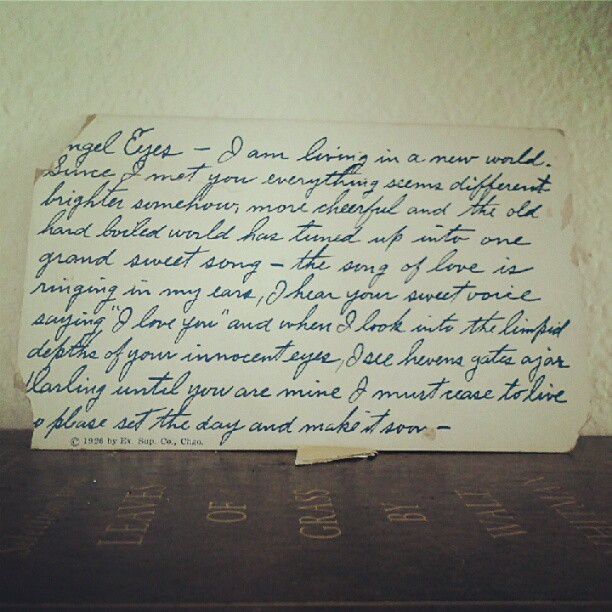 ngel Eyes — I am living in a new world.
Since I met you everything seems different
brighter somehow, more cheerful and the old
hard boiled world has tuned up into one
grand sweet song — the song of love is
ringing in my ears, I hear your sweet voice
saying "I love you" and when I look into the limpid
depths of your innocent eyes, I see hevens gates ajar
Darling until you are mine I must cease to live
o please set the day and make it soon —
© 1926 by Ex. Sup. Co., Chgo.
LEAVES OF GRASS BY WALT WHITMAN